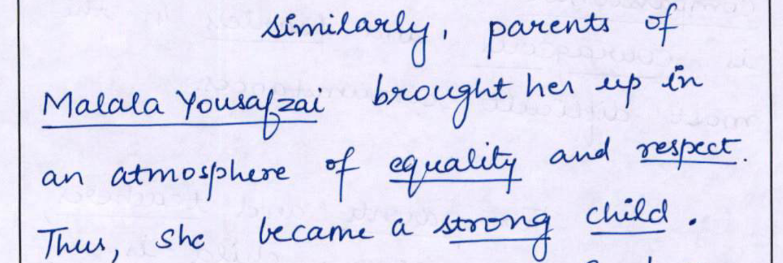 Similarly, parents of
Malala Yousafzai brought her up in
an atmosphere of equality and respect.
Thus, she became a strong child.